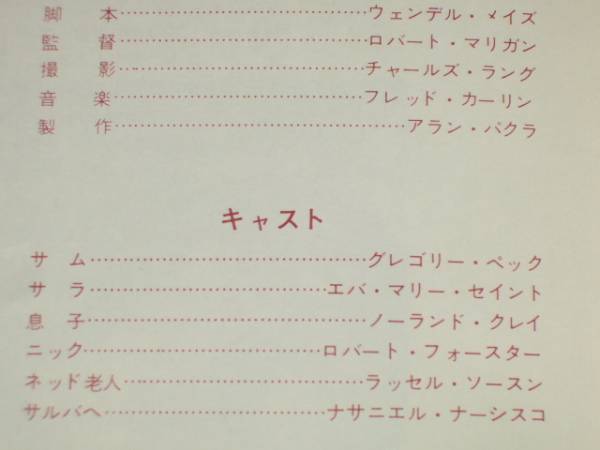 脚本……ウェンデル・メイズ
監督……ロバート・マリガン
撮影……チャールズ・ラング
音楽……フレッド・カーリン
製作……アラン・パクラ
キャスト
サム……グレゴリー・ペック
サラ……エバ・マリー・セイント
息子……ノーランド・クレイ
ニック……ロバート・フォースター
ネッド老人……ラッセル・ソースン
サルバへ……ナサニエル・ナーシスコ